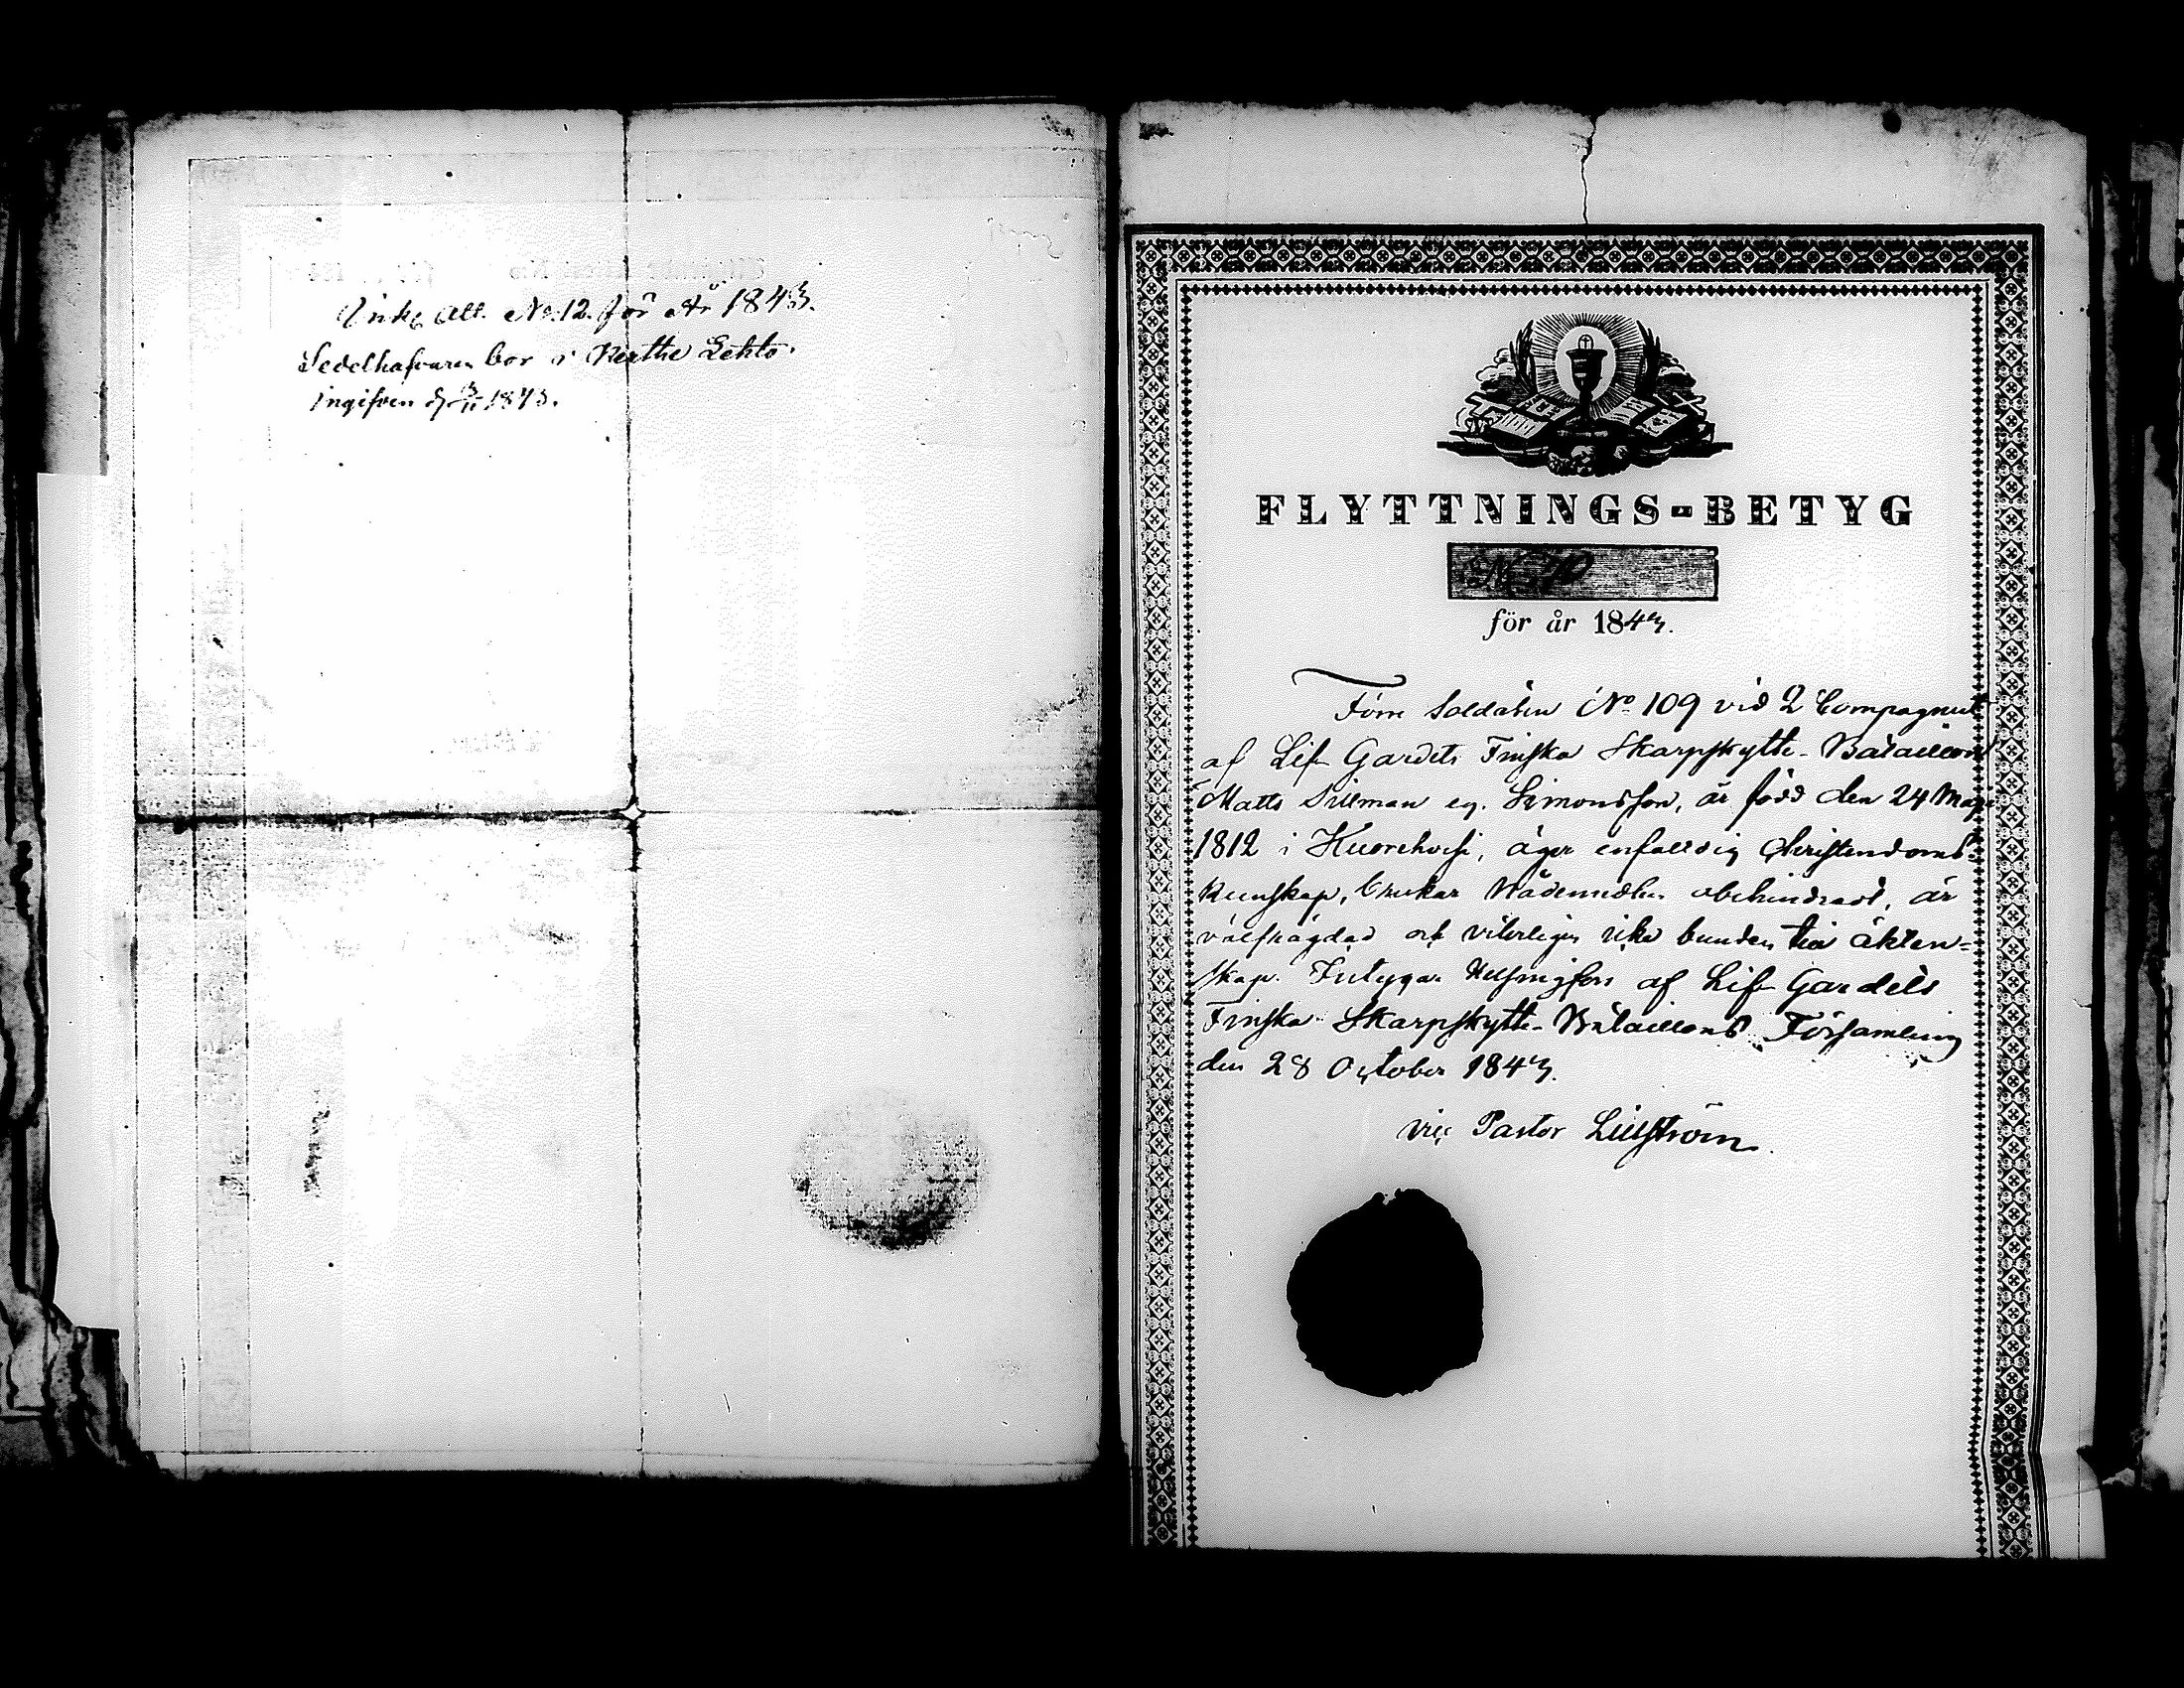 Att. No. 12. för År 1843.
Sedelhafvaren bor i Lehto.
ingifven d 3/11 1843.
FLYTTNINGS-BETYG
No 70
för år 1843.
Förre Soldaten No 109 vid 2 Compagniet
af Lif Gardets Finska Skarpskytte-Bataillon
Matts Sillman eg. Simonsson, är född den 24 Maji
1812 i Kuorehvesi, äger enfaldig Christendoms-
kunskap, brukar Nådemedlen obehindradt, är
välfrägdad och viterligen icke bunden till äkten=
skap. Intygar Helsingfors af Lif Gardets
Finska Skarpskytte-Bataillons Församling
den 28 October 1843.
vic Pastor Lillström.